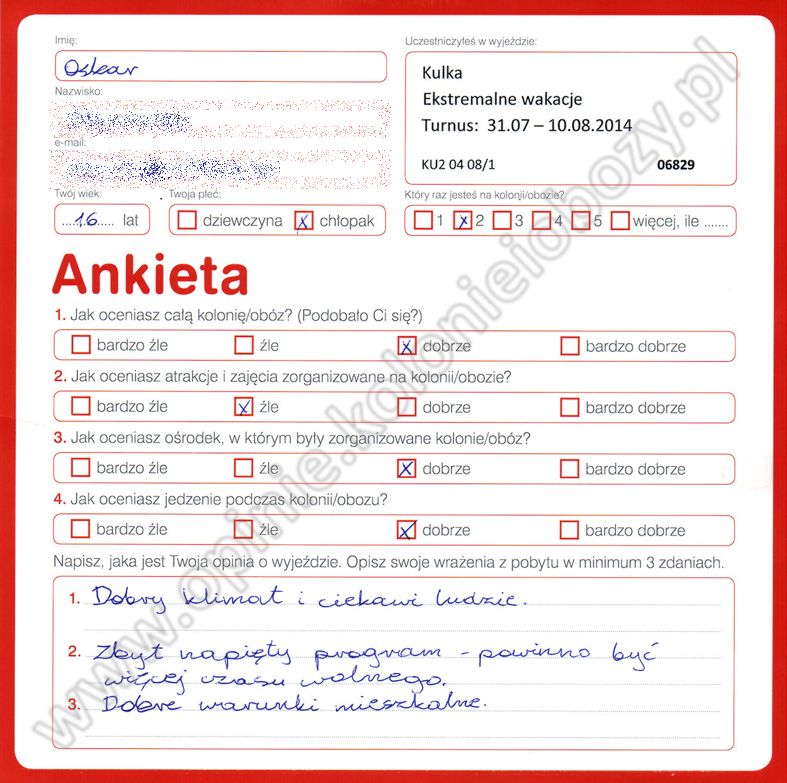 Imię:
Oskar
Nazwisko:
e-mail:
Twój wiek:
16 lat
Twoja płeć:
dziewczyna x chłopak
Uczestniczyłeś w wyjeździe:
Kulka
Ekstremalne wakacje
Turnus: 31.07 – 10.08.2014
KU2 04 08/1 06829
Który raz jesteś na kolonii/obozie?
1 x 2 3 4 5 więcej, ile .......
Ankieta
1. Jak oceniasz całą kolonię/obóz? (Podobało Ci się?)
bardzo źle źle x dobrze bardzo dobrze
2. Jak oceniasz atrakcje i zajęcia zorganizowane na kolonii/obozie?
bardzo źle x źle dobrze bardzo dobrze
3. Jak oceniasz ośrodek, w którym były zorganizowane kolonie/obóz?
bardzo źle źle x dobrze bardzo dobrze
4. Jak oceniasz jedzenie podczas kolonii/obozu?
bardzo źle źle x dobrze bardzo dobrze
Napisz, jaka jest Twoja opinia o wyjeździe. Opisz swoje wrażenia z pobytu w minimum 3 zdaniach.
1. Dobry klimat i ciekawi ludzie.
2. Zbyt napięty program - powinno być
więcej czasu wolnego.
3. Dobre warunki mieszkalne.
www.opinie.kolonieiobozy.pl